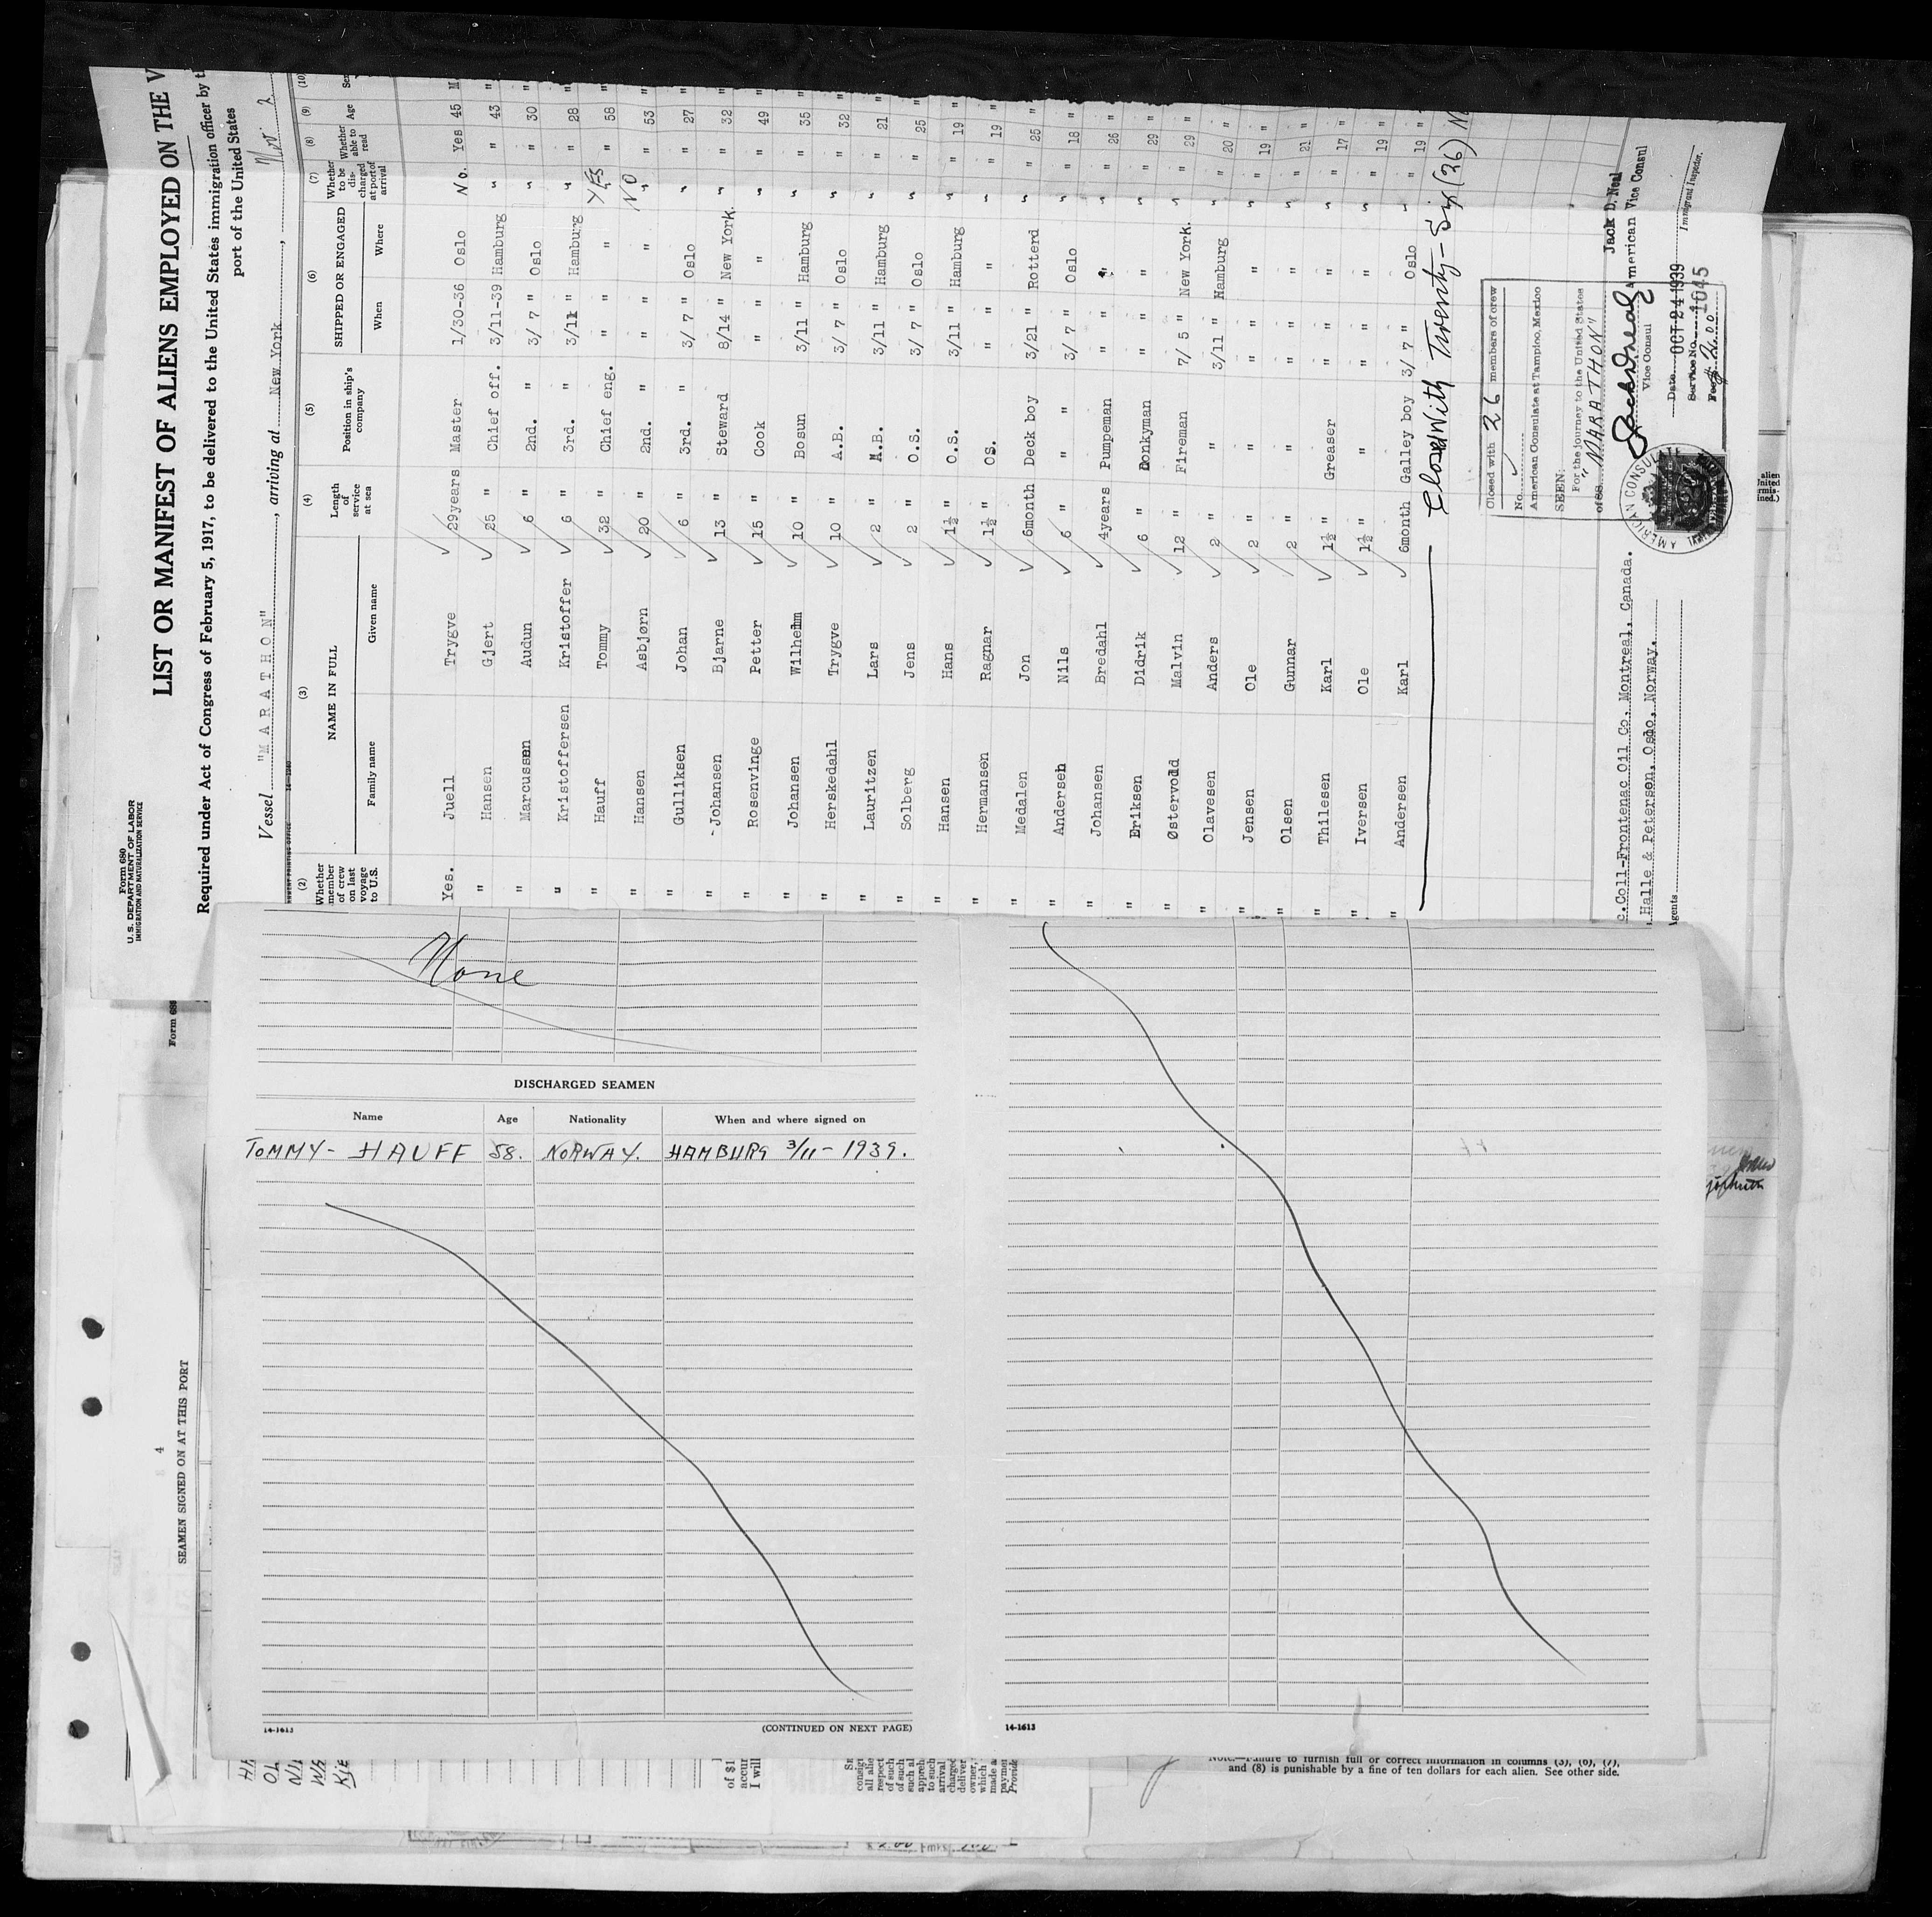 Form 680
U. S. DEPARTMENT OF LABOR
IMMIGRATION AND NATURALIZATION SERVICE
LIST OR MANIFEST OF ALIENS EMPLOYED ON THE V
Required under Act of Congress of February 5, 1917, to be delivered to the United States immigration officer by t
port of the United States
Vessel "MARATHON", arriving at New York, Nov 2
(2) (3) (4) (5) (6) (7) (8) (9) (10)
Whether member of crew on last voyage to U.S. NAME IN FULL Family name Given name Length of service at sea Position in ship's company SHIPPED OR ENGAGED When Where Whether to be discharged at port of arrival Whether able to read Age Sex
Yes. Juell Trygve 29years Master 1/30-36 Oslo No. Yes 45 M
" Hansen Gjert 25 " Chief off. 3/11-39 Hamburg " " 43 "
" Marcussen Audun 6 " 2nd. " 3/ 7 " Oslo " " 30 "
" Kristoffersen Kristoffer 6 " 3rd. " 3/11 " Hamburg " " 28 "
" Hauff Tommy 32 " Chief eng. " " YES " 58 "
" Hansen Asbjørn 20 " 2nd. " " " NO " 53 "
" Gulliksen Johan 6 " 3rd. " 3/ 7 " Oslo " " 27 "
" Johansen Bjarne 13 " Steward 8/14 " New York. " " 32 "
" Rosenvinge Petter 15 " Cook " " " " 49 "
" Johansen Wilhelm 10 " Bosun 3/11 " Hamburg " " 35 "
" Herskedahl Trygve 10 " A.B. 3/ 7 " Oslo " " 32 "
" Lauritzen Lars 2 " A.B. 3/11 " Hamburg " " 21 "
" Solberg Jens 2 " O.S. 3/ 7 " Oslo " " 25 "
" Hansen Hans 1½ " O.S. 3/11 " Hamburg " " 19 "
" Hermansen Ragnar 1½ " OS. " " " " 19 "
" Medalen Jon 6month Deck boy 3/21 " Rotterd " " 25 "
" Andersen Nils 6 " " " 3/ 7 " Oslo " " 18 "
" Johansen Bredahl 4years Pumpeman " " " " 26 "
" Eriksen Didrik 6 " Donkyman " " " " 29 "
" Østervold Malvin 12 " Fireman 7/ 5 " New York. " " 29 "
" Olavesen Anders 2 " " 3/11 " Hamburg " " 20 "
" Jensen Ole 2 " " " " " " 19 "
" Olsen Gunnar 2 " " " " " " 21 "
" Thilesen Karl 1½ " Greaser " " " " 17 "
" Iversen Ole 1½ " " " " " " 19 "
" Andersen Karl 6month Galley boy 3/ 7 " Oslo " " 19 "
Closed With Twenty-Six (26)
Closed with 26 members of crew
No.
American Consulate at Tampico, Mexico
SEEN:
For the journey to the United States
of SS. "MARATHON"
Jack D Neal
Vice Consul
Date OCT 24 1939
Service No. 1045
Fee $ 2.00
AMERICAN CONSULATE
Jack D. Neal
American Vice Consul
Immigrant Inspector.
c.Coll-Frontenac Oil Co, Montreal, Canada.
Halle & Peterson, Oslo, Norway.
Agents
None
DISCHARGED SEAMEN
Name Age Nationality When and where signed on
TOMMY- HAUFF 58. NORWAY. HAMBURG 3/11- 1939.
14-1613
(CONTINUED ON NEXT PAGE)
14-1613
Form 689
4
SEAMEN SIGNED ON AT THIS PORT
of $1
accur
I will
Note.—Failure to furnish full or correct information in columns (3), (6), (7),
and (8) is punishable by a fine of ten dollars for each alien. See other side.